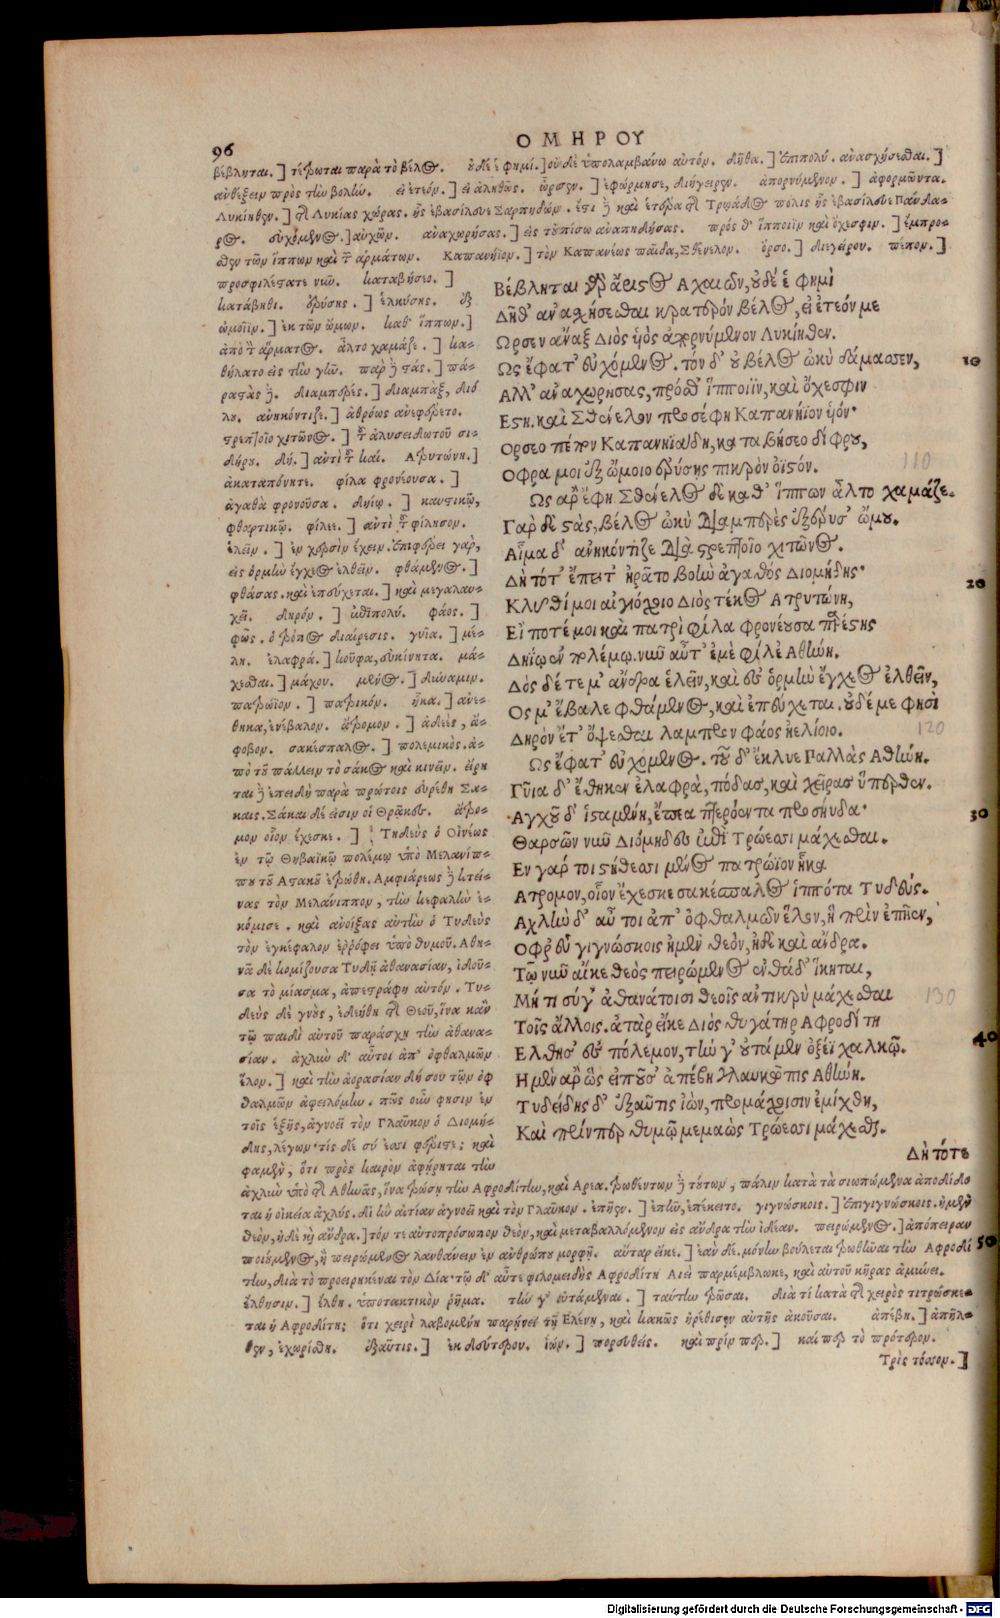 96
ΟΜΗΡΟΥ
βέβληται.] τέτρωται παρὰ τὸ βέλος. οὐδέ ἑ φημί.] οὐδὲ ὑπολαμβάνω αὐτόν. δηθά.] ἐπιπολύ. ἀνασχήσεσθαι.]
ἀνθέξειν πρὸς τὴν βολήν. εἰ ἐτεόν.] εἰ ἀληθῶς. ὦρσεν.] ἐφώρμησε, διήγειρεν. ἀπορνύμενον.] ἀφορμῶντα.
Λυκίηθεν.] τῆς Λυκίας χώρας. ἧς ἐβασίλευε Σαρπηδών. ἔστι δὲ καὶ ἑτέρα τῆς Τρωάδος πόλις ἧς ἐβασίλευε Πάνδα-
ρος. εὐχόμενος.] αὐχῶν. ἀναχωρήσας.] εἰς τοὐπίσω ἀναπηδήσας. πρόσθ' ἵπποιϊν καὶ ὄχεσφιν.] ἔμπρο-
σθεν τῶν ἵππων καὶ τῶν ἁρμάτων. Καπανήϊον.] τὸν Καπανέως παῖδα, Σθένελον. ὄρσο.] διεγέρου. πέπον.]
προσφιλέστατε νῦν. καταβήσεο.]
κατάβηθι. ἐρύσης.] ἑλκύσης. ἐξ
ὤμοιϊν.] ἐκ τῶν ὤμων. καθ' ἵππων.]
ἀπὸ τοῦ ἅρματος. ἆλτο χαμᾶζε.] κα-
θήλατο εἰς τὴν γῆν. παρ δὲ στάς.] πα-
ραστὰς δέ. διαμπερές.] διαμπάξ, διό
λου. ἀνηκόντιζε.] ἀθρόως ἀνεφέρετο.
στρεπτοῖο χιτῶνος.] τοῦ ἁλυσειδωτοῦ σι-
δήρου. δή.] ἀντὶ τοῦ καί. Ατρυτώνη.]
ἀκαταπόνητε. φίλα φρονέουσα.]
ἀγαθὰ φρονοῦσα. δηΐῳ.] καυστικῷ,
φθαρτικῷ. φίλει.] ἀντὶ τοῦ φίλησον.
ἑλεῖν.] ἐν χερσὶν ἔχειν. ἐπιφέρει γάρ,
εἰς ὁρμὴν ἔγχεος ἐλθεῖν. φθάμενος.]
φθάσας. καὶ ἐπεύχεται.] καὶ μεγαλαυ-
χεῖ. δηρόν.] ἐπιπολύ. φάος.]
φῶς. ὁ τρόπος διαίρεσις. γυῖα.] μέ-
λη. ἐλαφρά.] κοῦφα, εὐκίνητα. μά-
χεσθαι.] μάχου. μένος.] δύναμιν.
πατρώϊον.] πατρικόν. ἧκα.] ἀνέ-
θηκα, ἐνέβαλον. ἄτρομον.] ἀδεές, ἄ-
φοβον. σακέσπαλος.] πολεμικὸς. ἀ-
πὸ τοῦ πάλλειν τὸ σάκος καὶ κινεῖν. εἴρη
ται δὲ ἐπειδὴ παρὰ πρώτοις εὑρέθη Σά-
καις. Σάκαι δέ εἰσιν οἱ Θρᾷκες. ἄτρο-
μον οἷον ἔχεσκε.] Τηδεὺς ὁ Οἰνέως
ἐν τῷ Θηβαϊκῷ πολέμῳ ὑπὸ Μελανίπ-
που τοῦ Ασακοῦ ἐτρώθη. Αμφιάρεως δὲ κτεί-
νας τὸν Μελάνιππον, τὴν κεφαλὴν ἐ-
κόμισε. καὶ ἀνοίξας αὐτὴν ὁ Τυδεὺς
τὸν ἐγκέφαλον ἐρρόφει ὑπὸ θυμοῦ. Αθη-
νᾶ δὲ κομίζουσα Τυδῇ ἀθανασίαν, ἰδοῦ-
σα τὸ μίασμα, ἀπεστράφη αὐτόν. Τυ-
δεὺς δὲ γνοὺς, ἐδεήθη τῆς Θεοῦ, ἵνα κἂν
τῷ παιδὶ αὐτοῦ παράσχῃ τὴν ἀθανα-
σίαν. ἀχλὺν δ' αὖτοι ἀπ' ὀφθαλμῶν
ἕλον.] καὶ τὴν ἀορασίαν δή σου τῶν ὀφ
θαλμῶν ἀφειλόμην. πῶς οὖν φησιν ἐν
τοῖς ἑξῆς, ἀγνοεῖ τὸν Γλαῦκον ὁ Διομή-
δης, λέγων· τίς δέ σύ ἐσσι φέριστε; καὶ
φαμὲν, ὅτι πρὸς καιρὸν ἀφῄρηται τὴν
ἀχλὺν ὑπὸ τῆς Αθηνᾶς, ἵνα τρώσῃ τὴν Αφροδίτην, καὶ Αρεα. τρωθέντων δὲ τούτων, πάλιν κατὰ τὰ σιωπώμενα ἀποδίδο
ται ἡ οἰκεία ἀχλύς. δι' ἣν αἰτίαν ἀγνοεῖ καὶ τὸν Γλαῦκον. ἐπῆεν.] ἐπῆν, ἐπέκειτο. γιγνώσκοις.] ἐπιγιγνώσκοις. ἠμὲν
θεὸν, ἠδὲ καὶ ἄνδρα.] τόν τε αὐτοπρόσωπον θεὸν, καὶ μεταβαλλόμενον εἰς ἄνδρα τὴν ἰδέαν. πειρώμενος.] ἀπόπειραν
ποιούμενος, ἢ πειρώμενος λανθάνειν ἐν ἀνθρώπου μορφῇ. αὐτὰρ εἴκε.] ἐὰν δὲ. μόνην βούλεται τρωθῆναι τὴν Αφροδί
την, διὰ τὸ προειρηκέναι τὸν Δία· τῷ δ' αὖτε φιλομειδὴς Αφροδίτη Αἰεὶ παρμέμβλωκε, καὶ αὐτοῦ κῆρας ἀμύνει.
ἔλθησιν.] ἔλθῃ. ὑποτακτικὸν ῥῆμα. τήν γ' οὐτάμεναι.] ταύτην τρῶσαι. διὰ τί κατὰ τῆς χειρὸς τιτρώσκε-
ται ἡ Αφροδίτη; ὅτι χειρὶ λαβομένη παρῄνει τῇ Ελένῃ, καὶ κακῶς ἠρέθισεν αὐτῆς ἀκοῦσαι. ἀπέβη.] ἀπῆλ-
θεν, ἐχωρίσθη. ἐξαῦτις.] ἐκ δευτέρου. ἰών.] πορευθείς. καὶ πρίν περ.] καίπερ τὸ πρότερον.
Τρὶς τόσσον.]
Βέβληται γὰρ ἄριστος Αχαιῶν, οὐδέ ἑ φημὶ
Δήθ' ἀνσχήσεσθαι κρατερόν βέλος, εἰ ἐτεόν με
Ωρσεν ἄναξ Διὸς υἱὸς ἀπορνύμενον Λυκίηθεν.
Ως ἔφατ' εὐχόμενος. τόν δ' οὐ βέλος ὠκὺ δάμασσεν,
10
Αλλ' ἀναχωρήσας, πρόσθ' ἵπποιϊν, καὶ ὄχεσφιν
Εστη. καὶ Σθένελον προσέφη Καπανήϊον υἱόν·
Ορσεο πέπον Καπανηϊάδη, καταβήσεο δίφρου,
110
Οφρα μοι ἐξ ὤμοιο ἐρύσης πικρὸν ὀϊστόν.
Ως ἂρ ἔφη. Σθένελος δὲ καθ' ἵππων ἆλτο χαμᾶζε.
Γὰρ δὲ στὰς, βέλος ὠκὺ διαμπερὲς ἐξέρυσ' ὤμου.
Αἷμα δ' ἀνηκόντιζε διὰ στρεπτοῖο χιτῶνος.
Δὴ τότ' ἔπειτ' ἠρᾶτο βοὴν ἀγαθός Διομήδης·
20
Κλῦθί μοι αἰγιόχοιο Διὸς τέκος Ατρυτώνη,
Εἴ ποτέ μοι καὶ πατρὶ φίλα φρονέουσα παρέστης
Δηΐῳ ἐν πολέμῳ. νῦν αὖτ' ἐμὲ φίλε Αθήνη.
Δὸς δέ τε μ' ἄνδρα ἑλεῖν, καὶ ἐς ὁρμὴν ἔγχεος ἐλθεῖν,
Ος μ' ἔβαλε φθάμενος, καὶ ἐπεύχεται. οὐδέ με φησὶ
120
Δηρὸν ἔτ' ὄψεσθαι λαμπρὸν φάος ἠελίοιο.
Ως ἔφατ' εὐχόμενος. τοῦ δ' ἔκλυε Παλλὰς Αθήνη.
Γῦια δ' ἔθηκεν ἐλαφρὰ, πόδας, καὶ χεῖρας ὕπερθεν.
Αγχοῦ δ' ἱσταμένη, ἔπεα πτερόεντα προσηύδα·
30
Θαρσῶν νῦν Διόμηδες ἐπὶ Τρώεσσι μάχεσθαι.
Εν γάρ τοι στήθεσσι μένος πατρώϊον ἧκα
Ατρομον, οἷον ἔχεσκε σακέσπαλος ἱππότα Τυδεύς.
Αχλὺν δ' αὖ τοι ἀπ' ὀφθαλμῶν ἕλον, ἣ πρὶν ἐπῆεν,
Οφρ' εὖ γιγνώσκοις ἠμὲν θεὸν, ἠδὲ καὶ ἄνδρα.
Τῷ νῦν αἴκε θεὸς πειρώμενος ἐνθάδ' ἵκηται,
Μή τι σύγ' ἀθανάτοισι θεοῖς ἀντικρὺ μάχεσθαι
130
Τοῖς ἄλλοις. ἀτὰρ εἴκε Διὸς θυγάτηρ Αφροδίτη
40
Ελθησ' ἐς πόλεμον, τήν γ' οὐτάμεν ὀξέϊ χαλκῷ.
Η μὲν ἂρ ὣς εἰποῦσ' ἀπέβη γλαυκῶπις Αθήνη.
Τυδείδης δ' ἐξαῦτις ἰών, προμάχοισιν ἐμίχθη,
Καὶ πρίν περ θυμῷ μεμαὼς Τρώεσσι μάχεσθαι.
Δὴ τότε
50
Digitalisierung gefördert durch die Deutsche Forschungsgemeinschaft - DFG